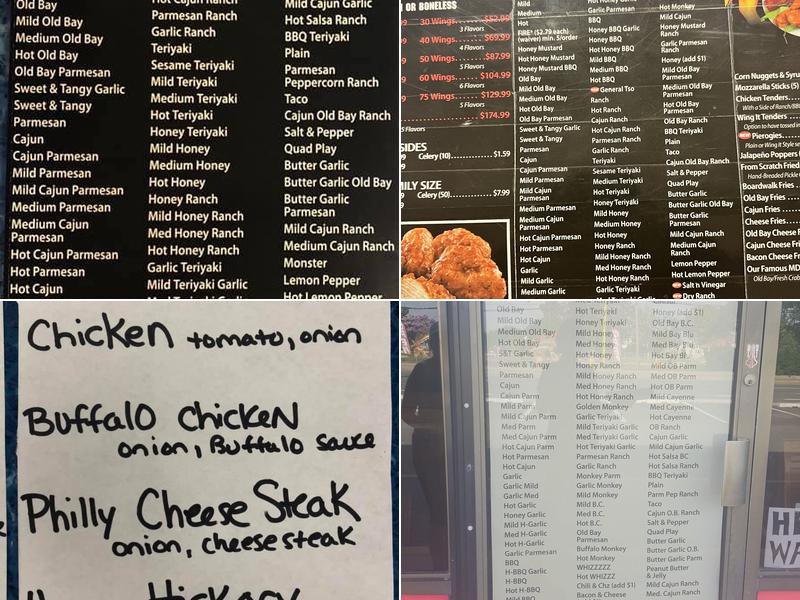 Old Bay
Mild Old Bay
Medium Old Bay
Hot Old Bay
Old Bay Parmesan
Sweet & Tangy Garlic
Sweet & Tangy
Parmesan
Cajun
Cajun Parmesan
Mild Parmesan
Mild Cajun Parmesan
Medium Parmesan
Medium Cajun
Parmesan
Hot Cajun Parmesan
Hot Parmesan
Hot Cajun
Parmesan Ranch
Garlic Ranch
Teriyaki
Sesame Teriyaki
Mild Teriyaki
Medium Teriyaki
Hot Teriyaki
Honey Teriyaki
Mild Honey
Medium Honey
Hot Honey
Honey Ranch
Mild Honey Ranch
Med Honey Ranch
Hot Honey Ranch
Garlic Teriyaki
Mild Teriyaki Garlic
Mild Cajun Garlic
Hot Salsa Ranch
BBQ Teriyaki
Plain
Parmesan
Peppercorn Ranch
Taco
Cajun Old Bay Ranch
Salt & Pepper
Quad Play
Butter Garlic
Butter Garlic Old Bay
Butter Garlic
Parmesan
Mild Cajun Ranch
Medium Cajun Ranch
Monster
Lemon Pepper
Hot Lemon Pepper
OR BONELESS
30 Wings
$52.99
3 Flavors
40 Wings
$69.99
4 Flavors
50 Wings
$87.99
5 Flavors
60 Wings
$104.99
6 Flavors
75 Wings
$129.99
5 Flavors
$174.99
5 Flavors
SIDES
Celery (10) $1.59
MILY SIZE
Celery (50) $7.99
Mild
Medium
Hot
FIRE* ($2.79 each)
(waiver) min. 5/order
Honey Mustard
Hot Honey Mustard
Honey Mustard BBQ
Old Bay
Mild Old Bay
Medium Old Bay
Hot Old Bay
Old Bay Parmesan
Sweet & Tangy Garlic
Sweet & Tangy
Parmesan
Cajun
Cajun Parmesan
Mild Parmesan
Mild Cajun
Parmesan
Medium Parmesan
Medium Cajun
Parmesan
Hot Cajun Parmesan
Hot Parmesan
Hot Cajun
Garlic
Mild Garlic
Medium Garlic
Garlic Parmesan
BBQ
Honey BBQ Garlic
Honey BBQ
Hot Honey BBQ
Mild BBQ
Medium BBQ
Hot BBQ
General Tso
Ranch
Hot Ranch
Cajun Ranch
Hot Cajun Ranch
Parmesan Ranch
Garlic Ranch
Teriyaki
Sesame Teriyaki
Mild Teriyaki
Medium Teriyaki
Hot Teriyaki
Honey Teriyaki
Mild Honey
Medium Honey
Hot Honey
Honey Ranch
Mild Honey Ranch
Med Honey Ranch
Hot Honey Ranch
Garlic Teriyaki
Hot Monkey
Mild Cajun
Honey Mustard
Ranch
Garlic Parmesan
Ranch
Honey (add $1)
Mild Old Bay
Parmesan
Medium Old Bay
Parmesan
Hot Old Bay
Parmesan
Old Bay Ranch
BBQ Teriyaki
Plain
Parmesan
Taco
Cajun Old Bay Ranch
Salt & Pepper
Quad Play
Butter Garlic
Butter Garlic Old Bay
Butter Garlic
Parmesan
Mild Cajun Ranch
Medium Cajun
Ranch
Lemon Pepper
Hot Lemon Pepper
Salt n Vinegar
Dry Ranch
Corn Nuggets & Syru
Mozzarella Sticks (5)
Chicken Tenders
With a Side of Ranch/BB
Wing It Tenders
Option to have tossed in
Pierogies
Plain or Wing It Style se
Jalapeño Poppers
From Scratch Fried
Hand-Breaded Pickle
Boardwalk Fries
Old Bay Fries
Cajun Fries
Cheese Fries
Old Bay Cheese F
Cajun Cheese Fri
Bacon Cheese Fr
Our Famous MD
Old Bay/Fresh Crab
Chicken tomato, onion
Buffalo Chicken
onion, Buffalo sauce
Philly Cheese Steak
onion, cheese steak
Hickory
Old Bay
Mild Old Bay
Medium Old Bay
Hot Old Bay
S&T Garlic
Sweet & Tangy
Parmesan
Cajun
Cajun Parm
Mild Parm
Mild Cajun Parm
Med Parm
Med Cajun Parm
Hot Cajun Parm
Hot Parmesan
Hot Cajun
Garlic
Garlic Mild
Garlic Med
Hot Garlic
Honey Garlic
Mild H-Garlic
Med H-Garlic
Hot H-Garlic
Garlic Parmesan
BBQ
H-BBQ Garlic
H-BBQ
Hot H-BBQ
Mild BBQ
Hot Teriyaki
Honey Teriyaki
Mild Honey
Med Honey
Hot Honey
Honey Ranch
Mild Honey Ranch
Med Honey Ranch
Hot Honey Ranch
Golden Monkey
Garlic Teriyaki
Mild Teriyaki Garlic
Med Teriyaki Garlic
Hot Teriyaki Garlic
Parmesan Ranch
Garlic Ranch
Monkey Parm
Garlic Monkey
Mild Monkey
Mild B.C.
Med B.C.
Hot B.C.
Old Bay
Parmesan
Buffalo Monkey
Hot Monkey
WHIZZZZZ
Hot WHIZZZ
Chili & Chz (add $1)
Bacon & Cheese
Honey (add $1)
Old Bay B.C.
Mild Bay Blu
Med Bay Blu
Hot Bay Blu
Mild OB Parm
Med OB Parm
Hot OB Parm
Mild Cayenne
Med Cayenne
Hot Cayenne
OB Ranch
Cajun Garlic
Mild Cajun Garlic
Hot Salsa BC
Hot Salsa Ranch
BBQ Teriyaki
Plain
Parm Pep Ranch
Taco
Cajun O.B. Ranch
Salt & Pepper
Quad Play
Butter Garlic
Butter Garlic O.B.
Butter Garlic Parm
Peanut Butter
& Jelly
Mild Cajun Ranch
Med. Cajun Ranch